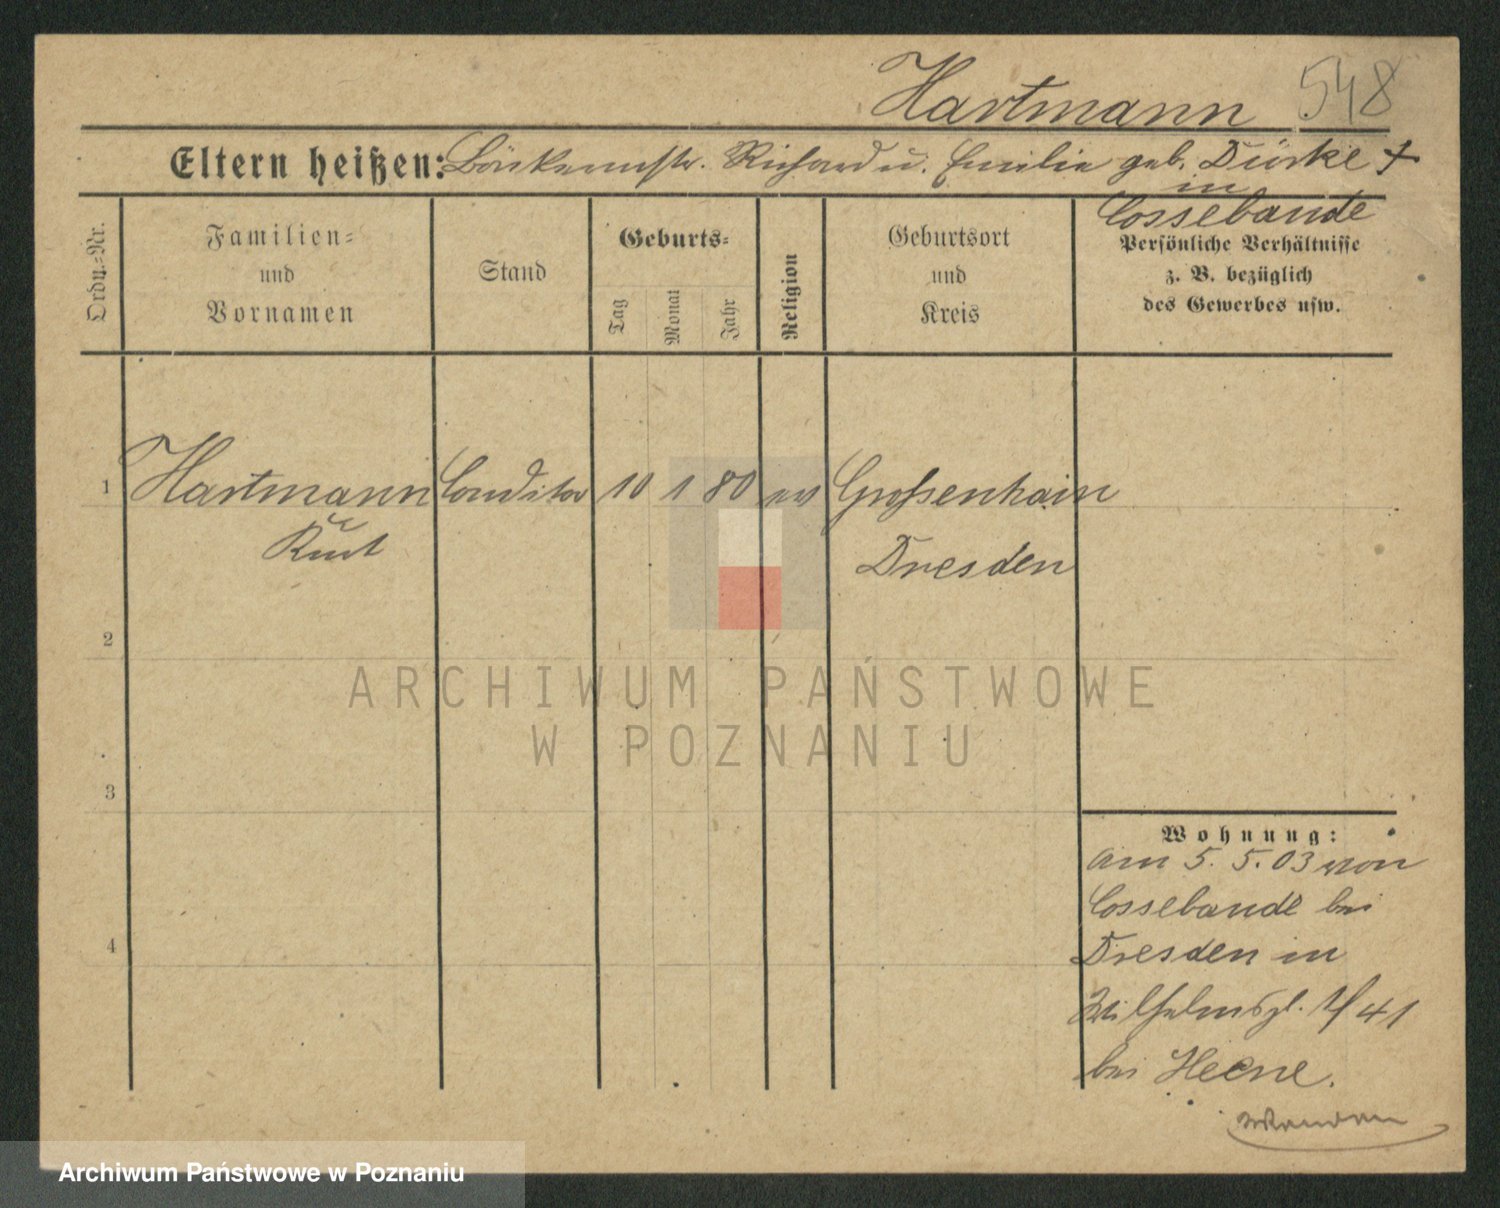 Hartmann 548
Eltern heißen: Bäckermstr. Richard u. Emilie geb. Dürke +
in
Cossebaude
Ordn.=Nr.
Familien=
und
Vornamen
Stand
Geburts=
Tag
Monat
Jahr
Religion
Geburtsort
und
Kreis
Persönliche Verhältnisse
z. B. bezüglich
des Gewerbes usw.
1 Hartmann Conditor 10 1 80 ev Grossenhain
Kurt Dresden
2
ARCHIWUM PAŃSTWOWE
W POZNANIU
3
Wohnung:
am 5. 5. 03 von
Cossebaude bei
4 Dresden in
Wilhelmspl. 1/41
bei Heene.
Archiwum Państwowe w Poznaniu